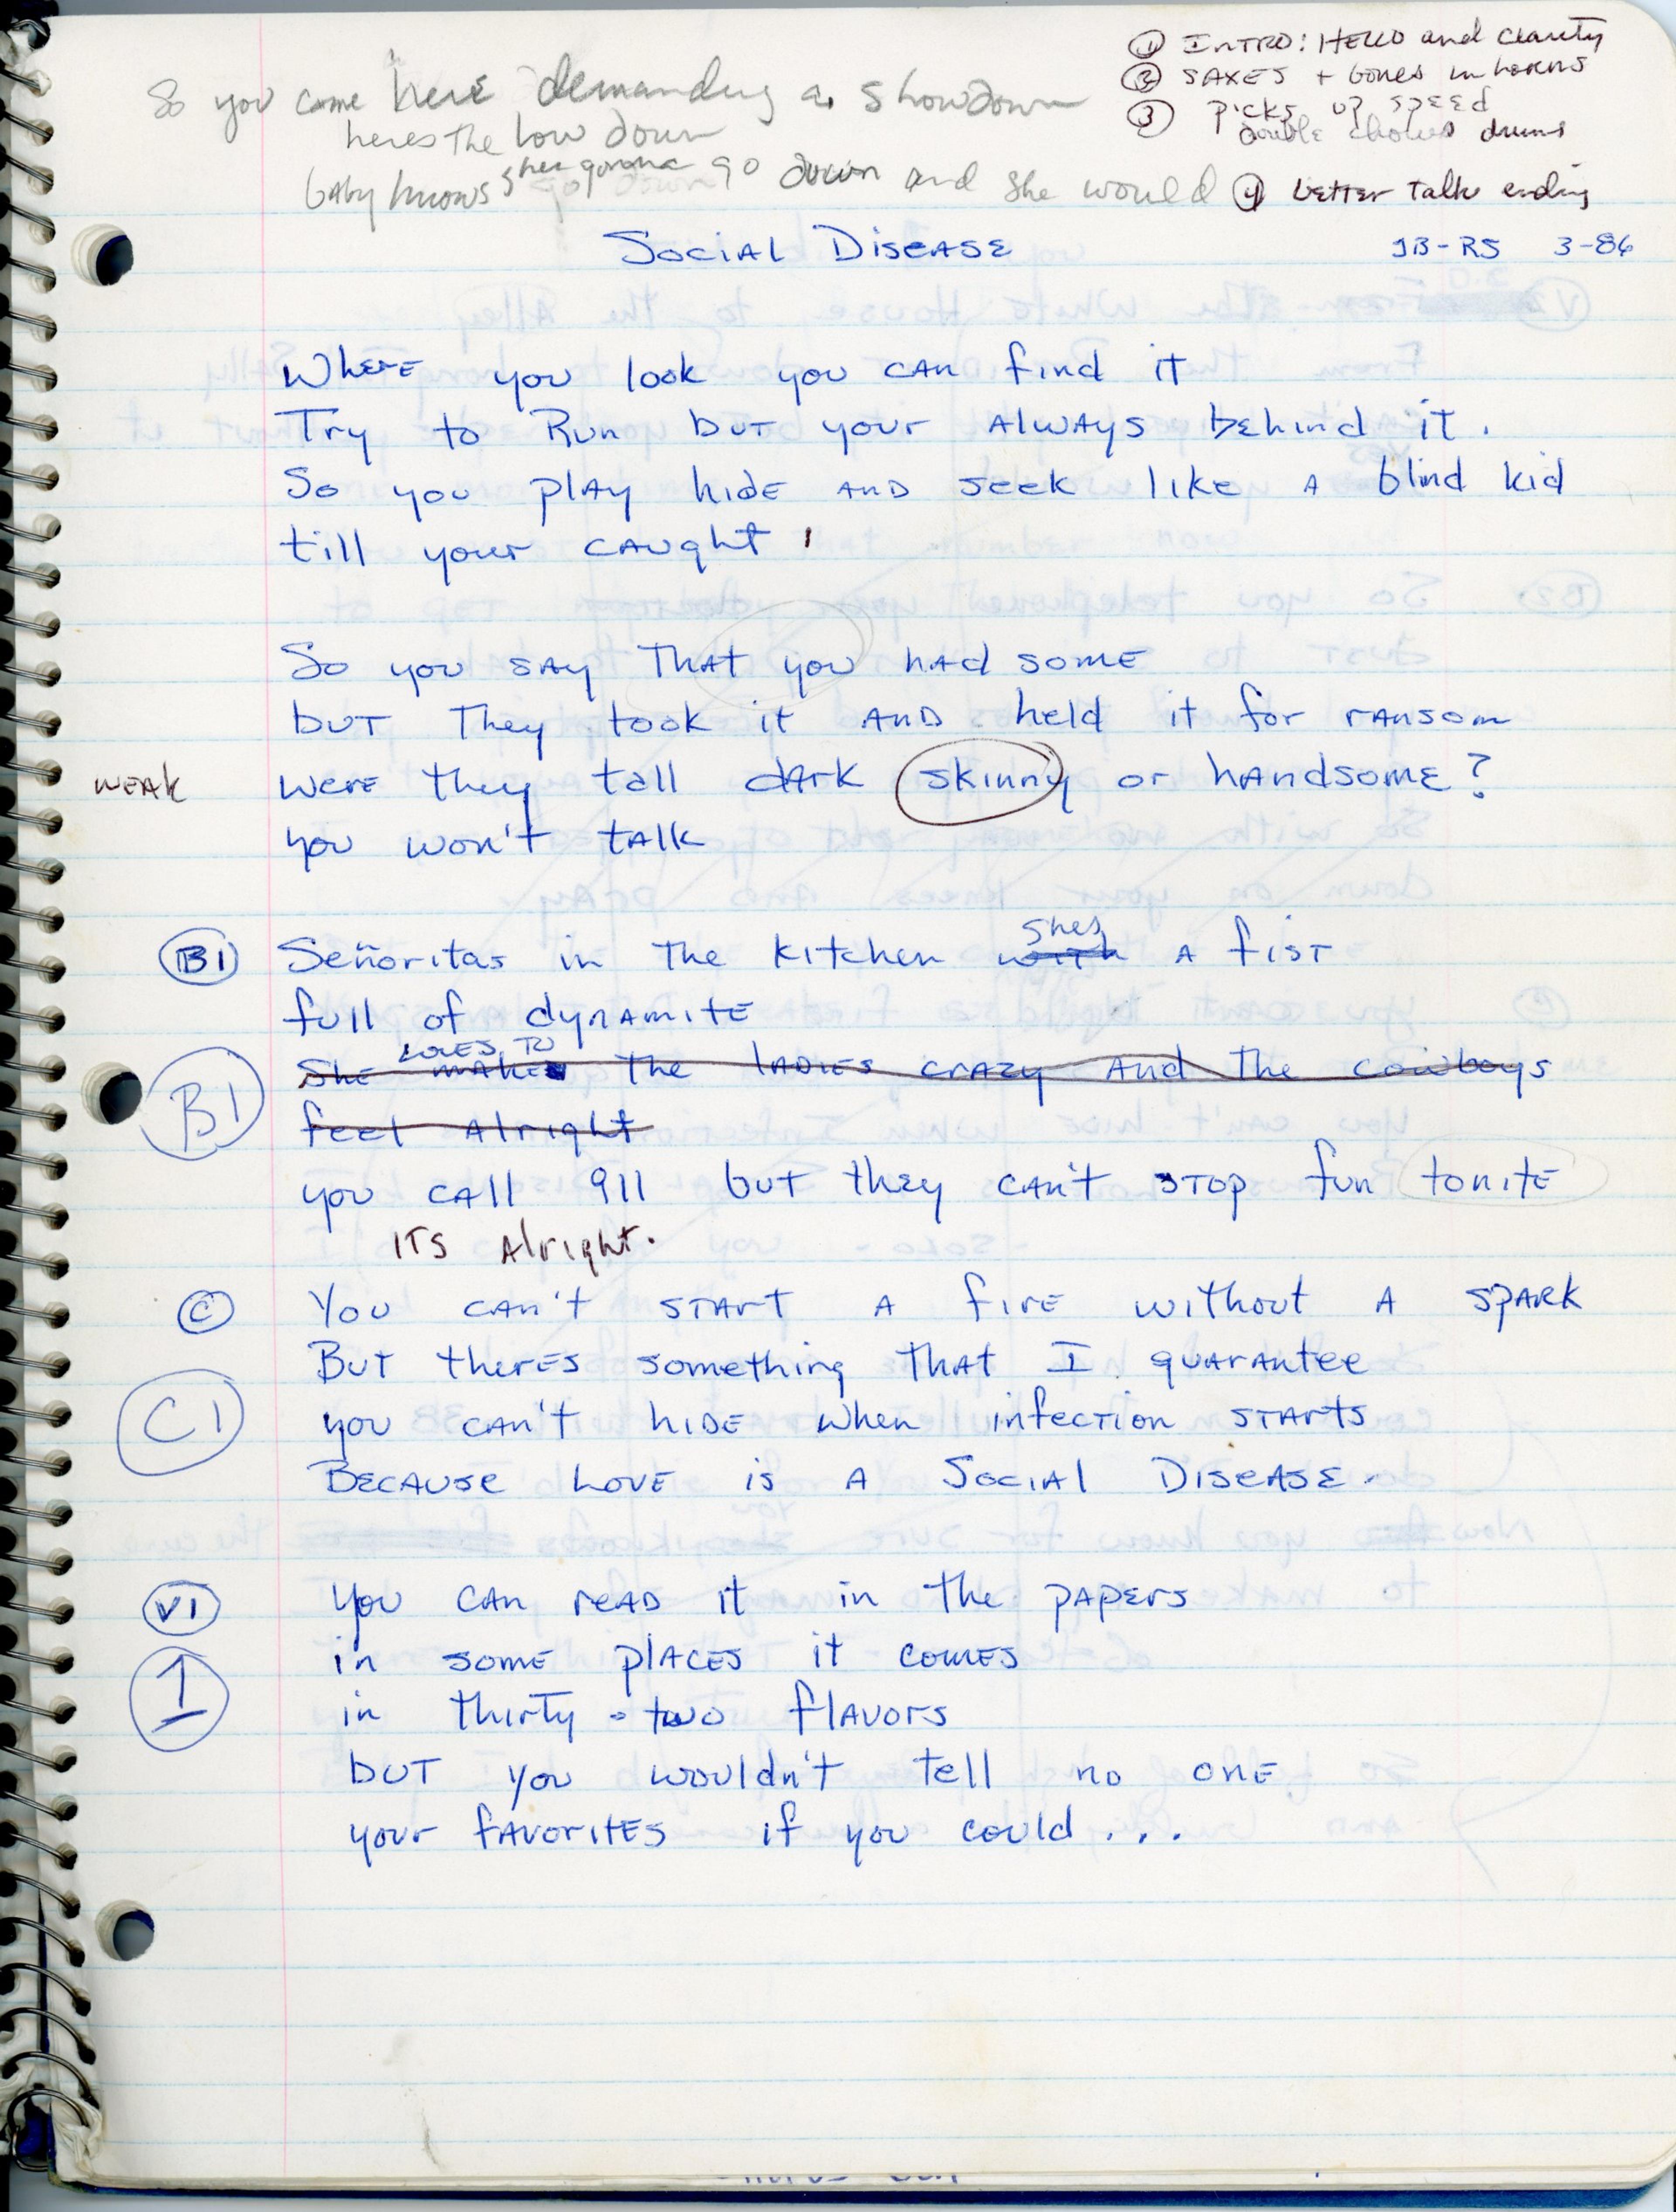 So you come here demanding a showdown
heres the low down
baby knows shes gonna go down and she would
① INTRO: HELLO and clarity
② SAXES + bones in horns
③ picks up speed
double drums
④ better talk ending
Social Disease
JB-RS 3-86
Where you look you can find it
Try to Run but your always behind it.
So you play hide and seek like a blind kid
till your caught
So you say that you had some
but they took it and held it for ransom
WEAK
were they tall dark skinny or handsome?
you won't talk
B1
Señoritas in the kitchen with shes a fist
full of dynamite
B1
She makes loves to the ladies crazy and the cowboys
feel alright
you call 911 but they can't stop fun tonite
ITS Alright.
C
You can't start a fire without a spark
But theres something that I guarantee
C1
you can't hide when infection starts
Because Love is a Social Disease.
V1
You can read it in the papers
in some places it comes
1
in thirty-two flavors
but you wouldn't tell no one
your favorites if you could...